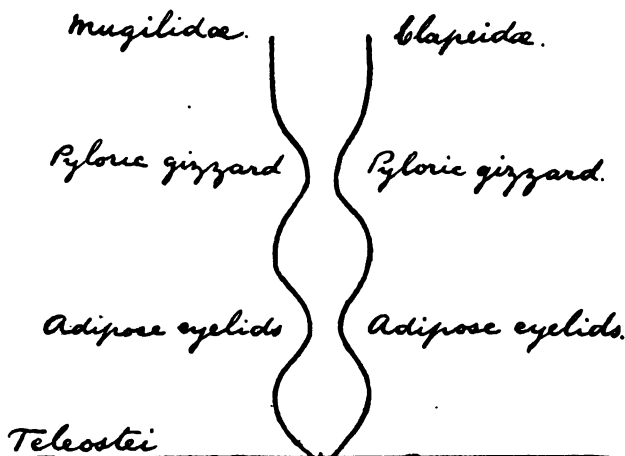 Mugilidæ. Clupeidæ.
Pyloric gizzard Pyloric gizzard.
Adipose eyelids Adipose eyelids.
Teleostei